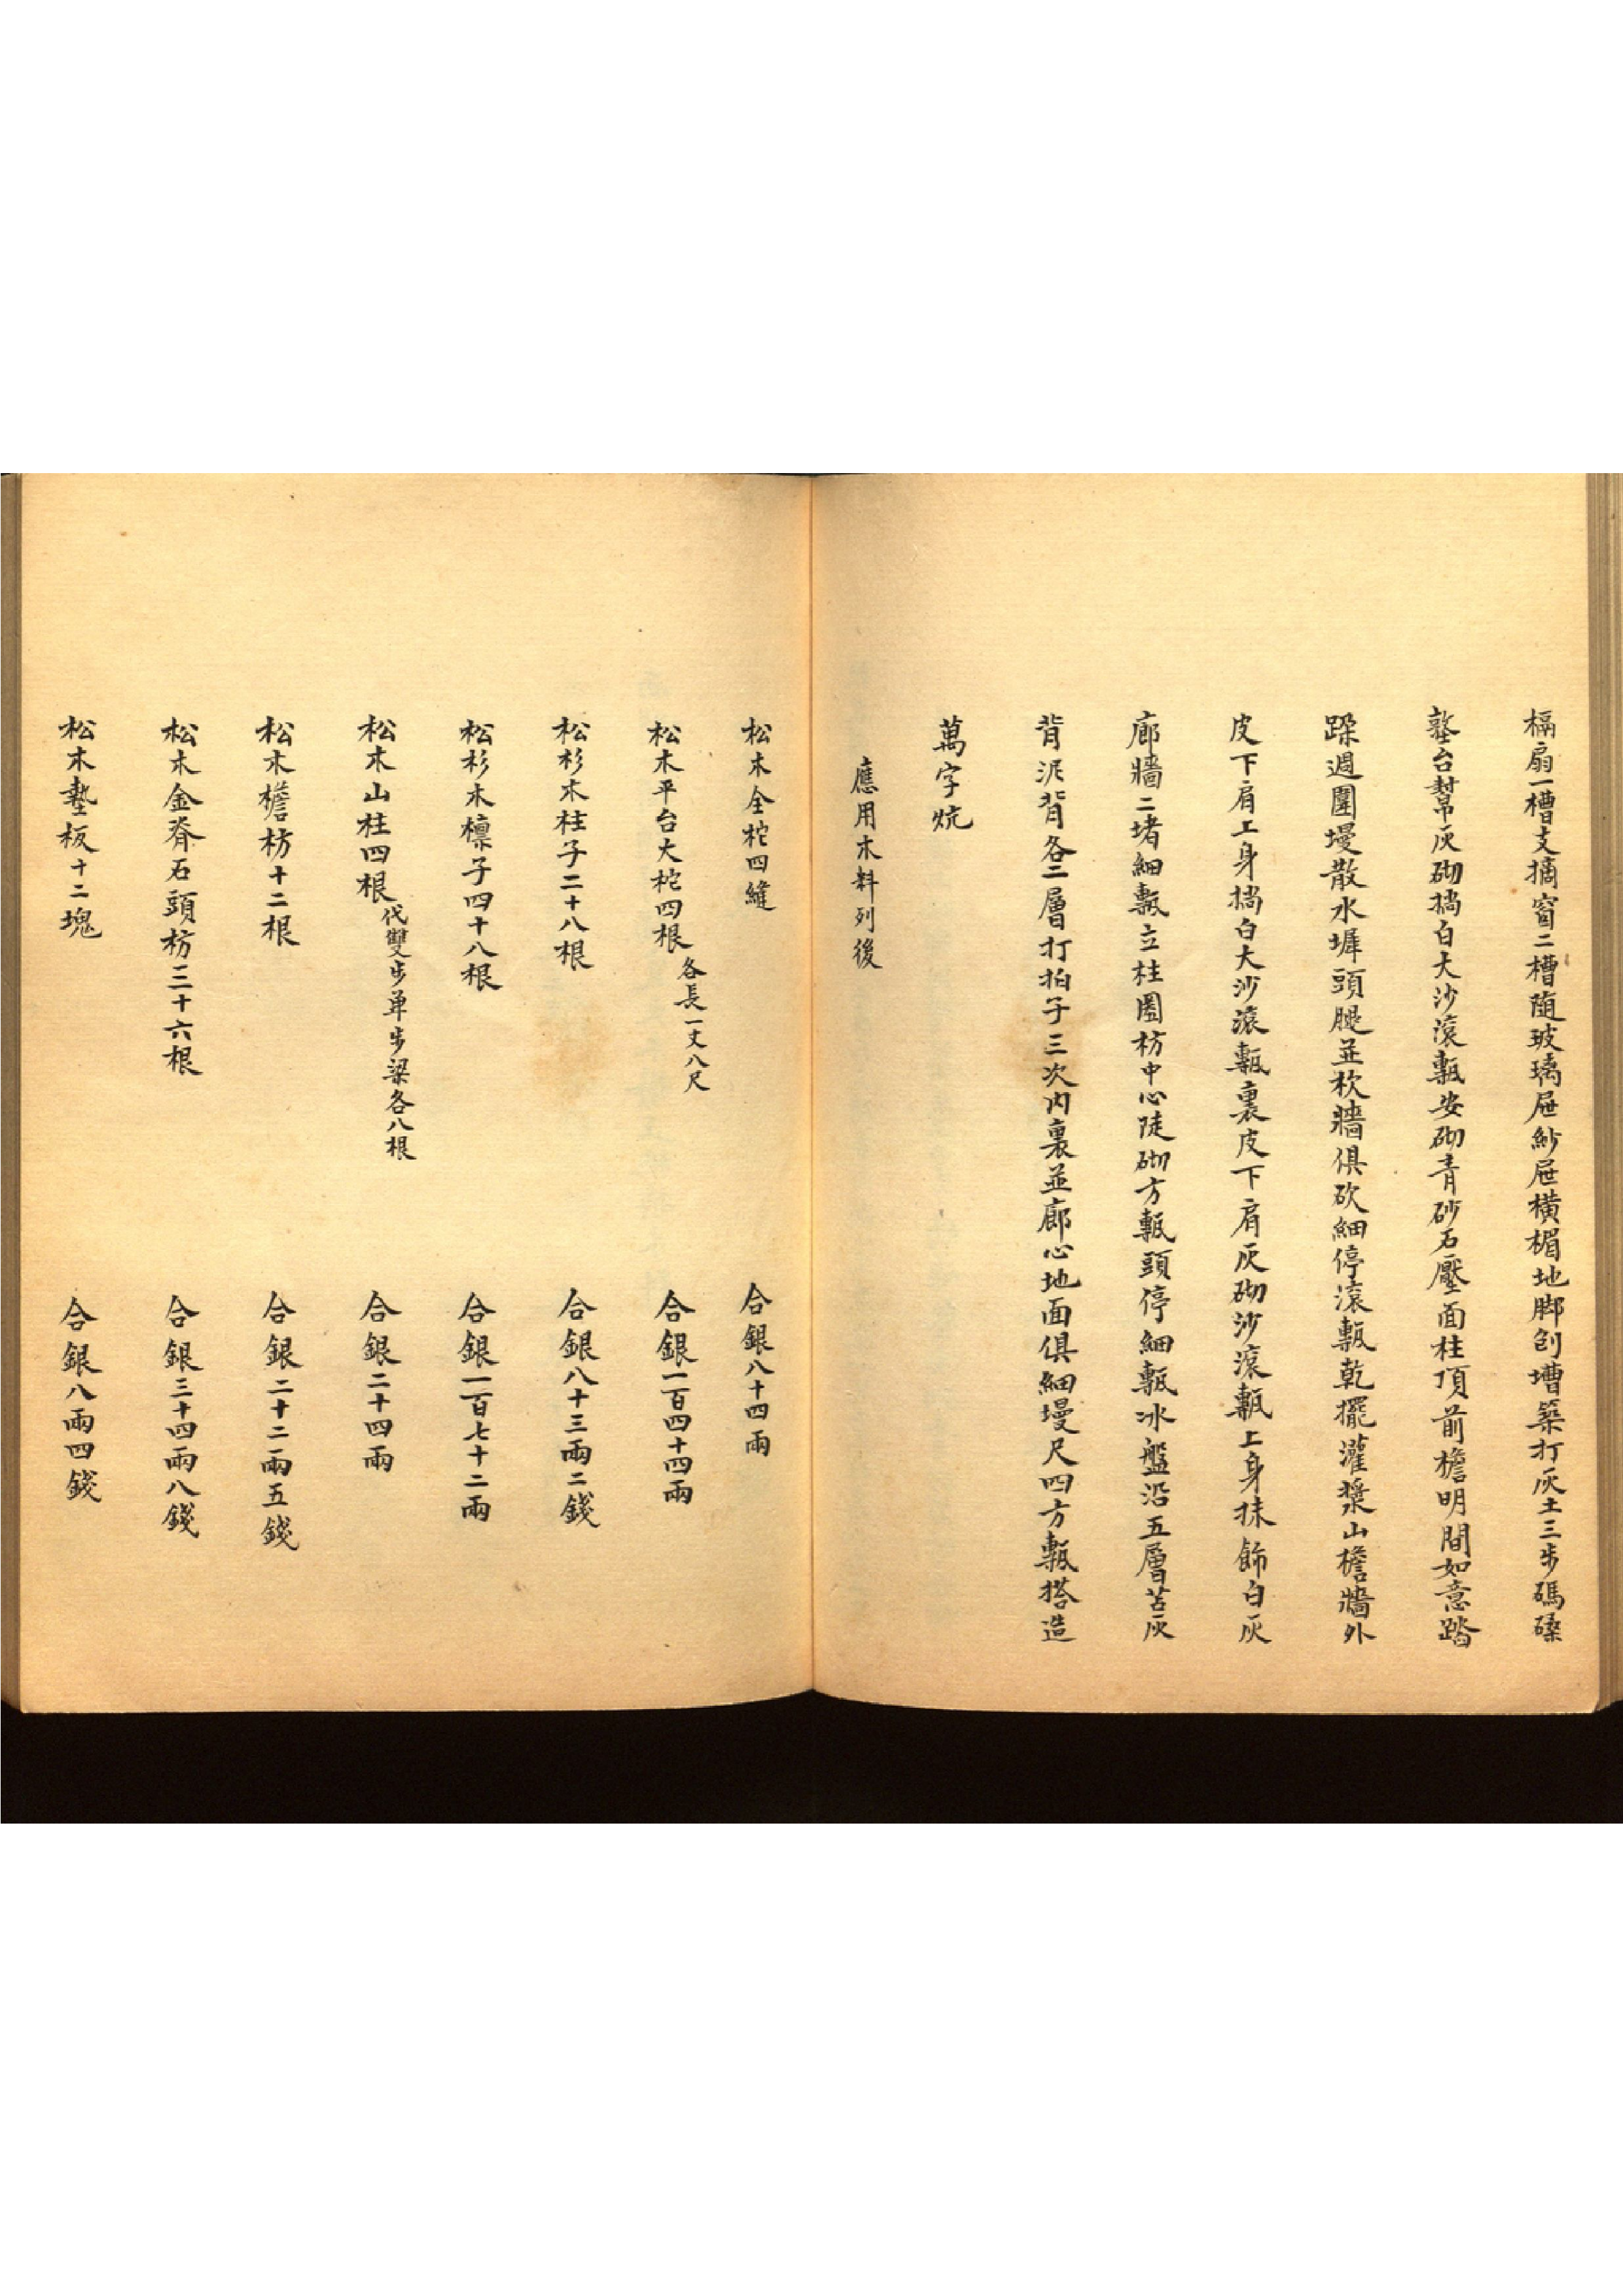 槅扇一槽支摘窗二槽隨玻璃屜紗屜橫楣地脚刨壜築打灰土三步碼磉
整台幫灰砌搊白大沙滾甎安砌青砂石壓面柱頂前檐明間如意踏
跺週圍墁散水墀頭腿並坎牆俱砍細停滾甎乾擺灌漿山檐牆外
皮下肩上身搊白大沙滾甎裏皮下肩灰砌沙滾甎上身抹飾白灰
廊牆二堵細甎立柱圈枋中心陡砌方甎頭停細甎冰盤沿五層苫灰
背泥背各二層打拍子三次內裏並廊心地面俱細墁尺四方甎搭造
萬字炕
應用木料列後
松木全柁四縫 合銀八十四兩
松木平台大柁四根各長一丈八尺 合銀一百四十四兩
松杉木柱子二十八根 合銀八十三兩二錢
松杉木檁子四十八根 合銀一百七十二兩
松木山柱四根代雙步单步梁各八根 合銀二十四兩
松木檐枋十二根 合銀二十二兩五錢
松木金脊石頭枋三十六根 合銀三十四兩八錢
松木墊板十二塊 合銀八兩四錢